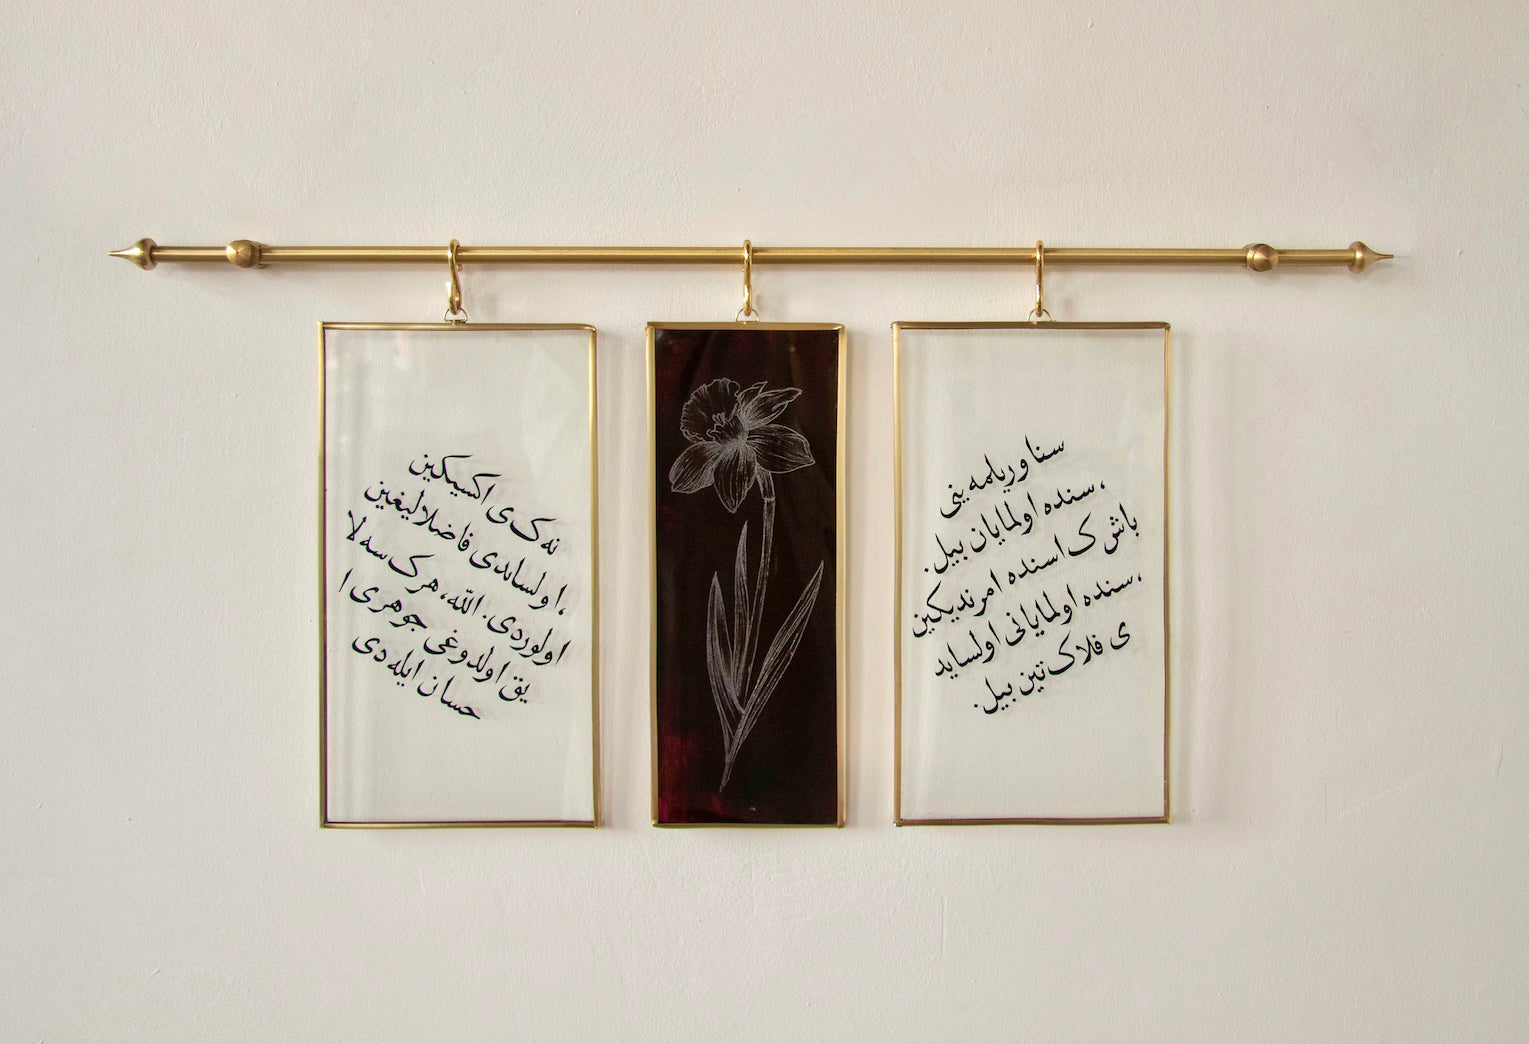 سنا وریلمه ینی
،سنده اولمایان بیل.
باش ک اسنده امرندیکین
،سنده اولمایانی اولساید
ی فلاک تین بیل.
نه ک ی اکسیکین
،اولسایدی فاضلالیغین
اولوردی. الله، هرک سه لا
یق اولدوغی جوهری ا
حسان ایله دی